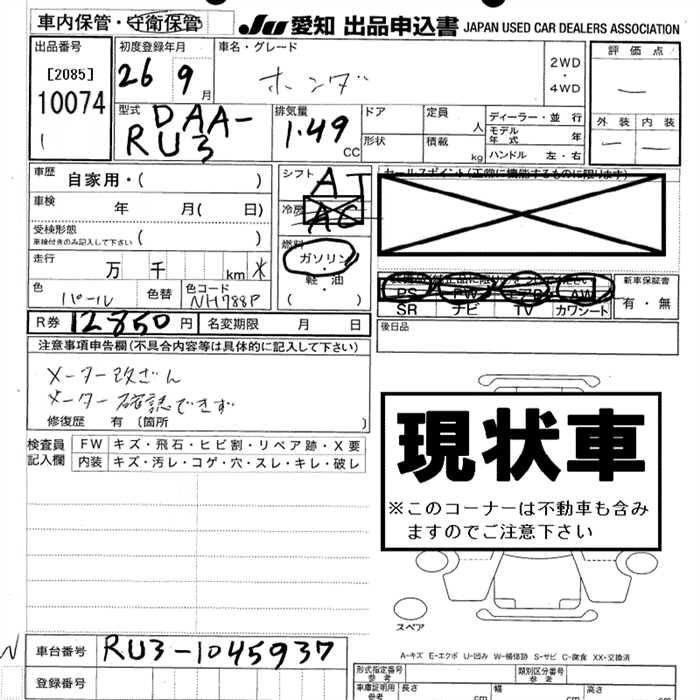 車内保管・守衛保管
JU 愛知 出品申込書 JAPAN USED CAR DEALERS ASSOCIATION
出品番号
[2085]
10074
初度登録年月
26 9月
車名・グレード
ホンダ
2WD
・
4WD
評価点
―
外装 内装
― ―
型式
DAA-
RU3
排気量
1.49
CC
ドア
形状
定員
人
積載
kg
ディーラー・並行
モデル年式 年
ハンドル 左・右
車歴
自家用・( )
車検 年 月( 日)
受検形態
車検付きのみ記入して下さい ( )
走行 万 千 km *
色 パール 色替 色コード NH788P
シフト
AT
冷房
AC
燃料
ガソリン
・
軽・油
セールスポイント(正常に機能するものに限ります)
PS PW エアB AW
SR ナビ TV カワシート
新車保証書
有・無
R券 12850円 名変期限 月 日
後日品
注意事項申告欄(不具合内容等は具体的に記入して下さい)
メーター改ざん
メーター確認できず
修復歴 有 〔箇所 〕
検査員
記入欄
FW キズ・飛石・ヒビ割・リペア跡・X要
内装 キズ・汚レ・コゲ・穴・スレ・キレ・破レ
現状車
※このコーナーは不動車も含み
ますのでご注意下さい
スペア
A-キズ E-エクボ U-凹み W-補修跡 S-サビ C-腐食 XX-交換済
車台番号 RU3-1045937
登録番号
形式指定番号
参考
類別区分番号
参考
車庫証明用
参考
長さ cm 幅 cm 高さ cm